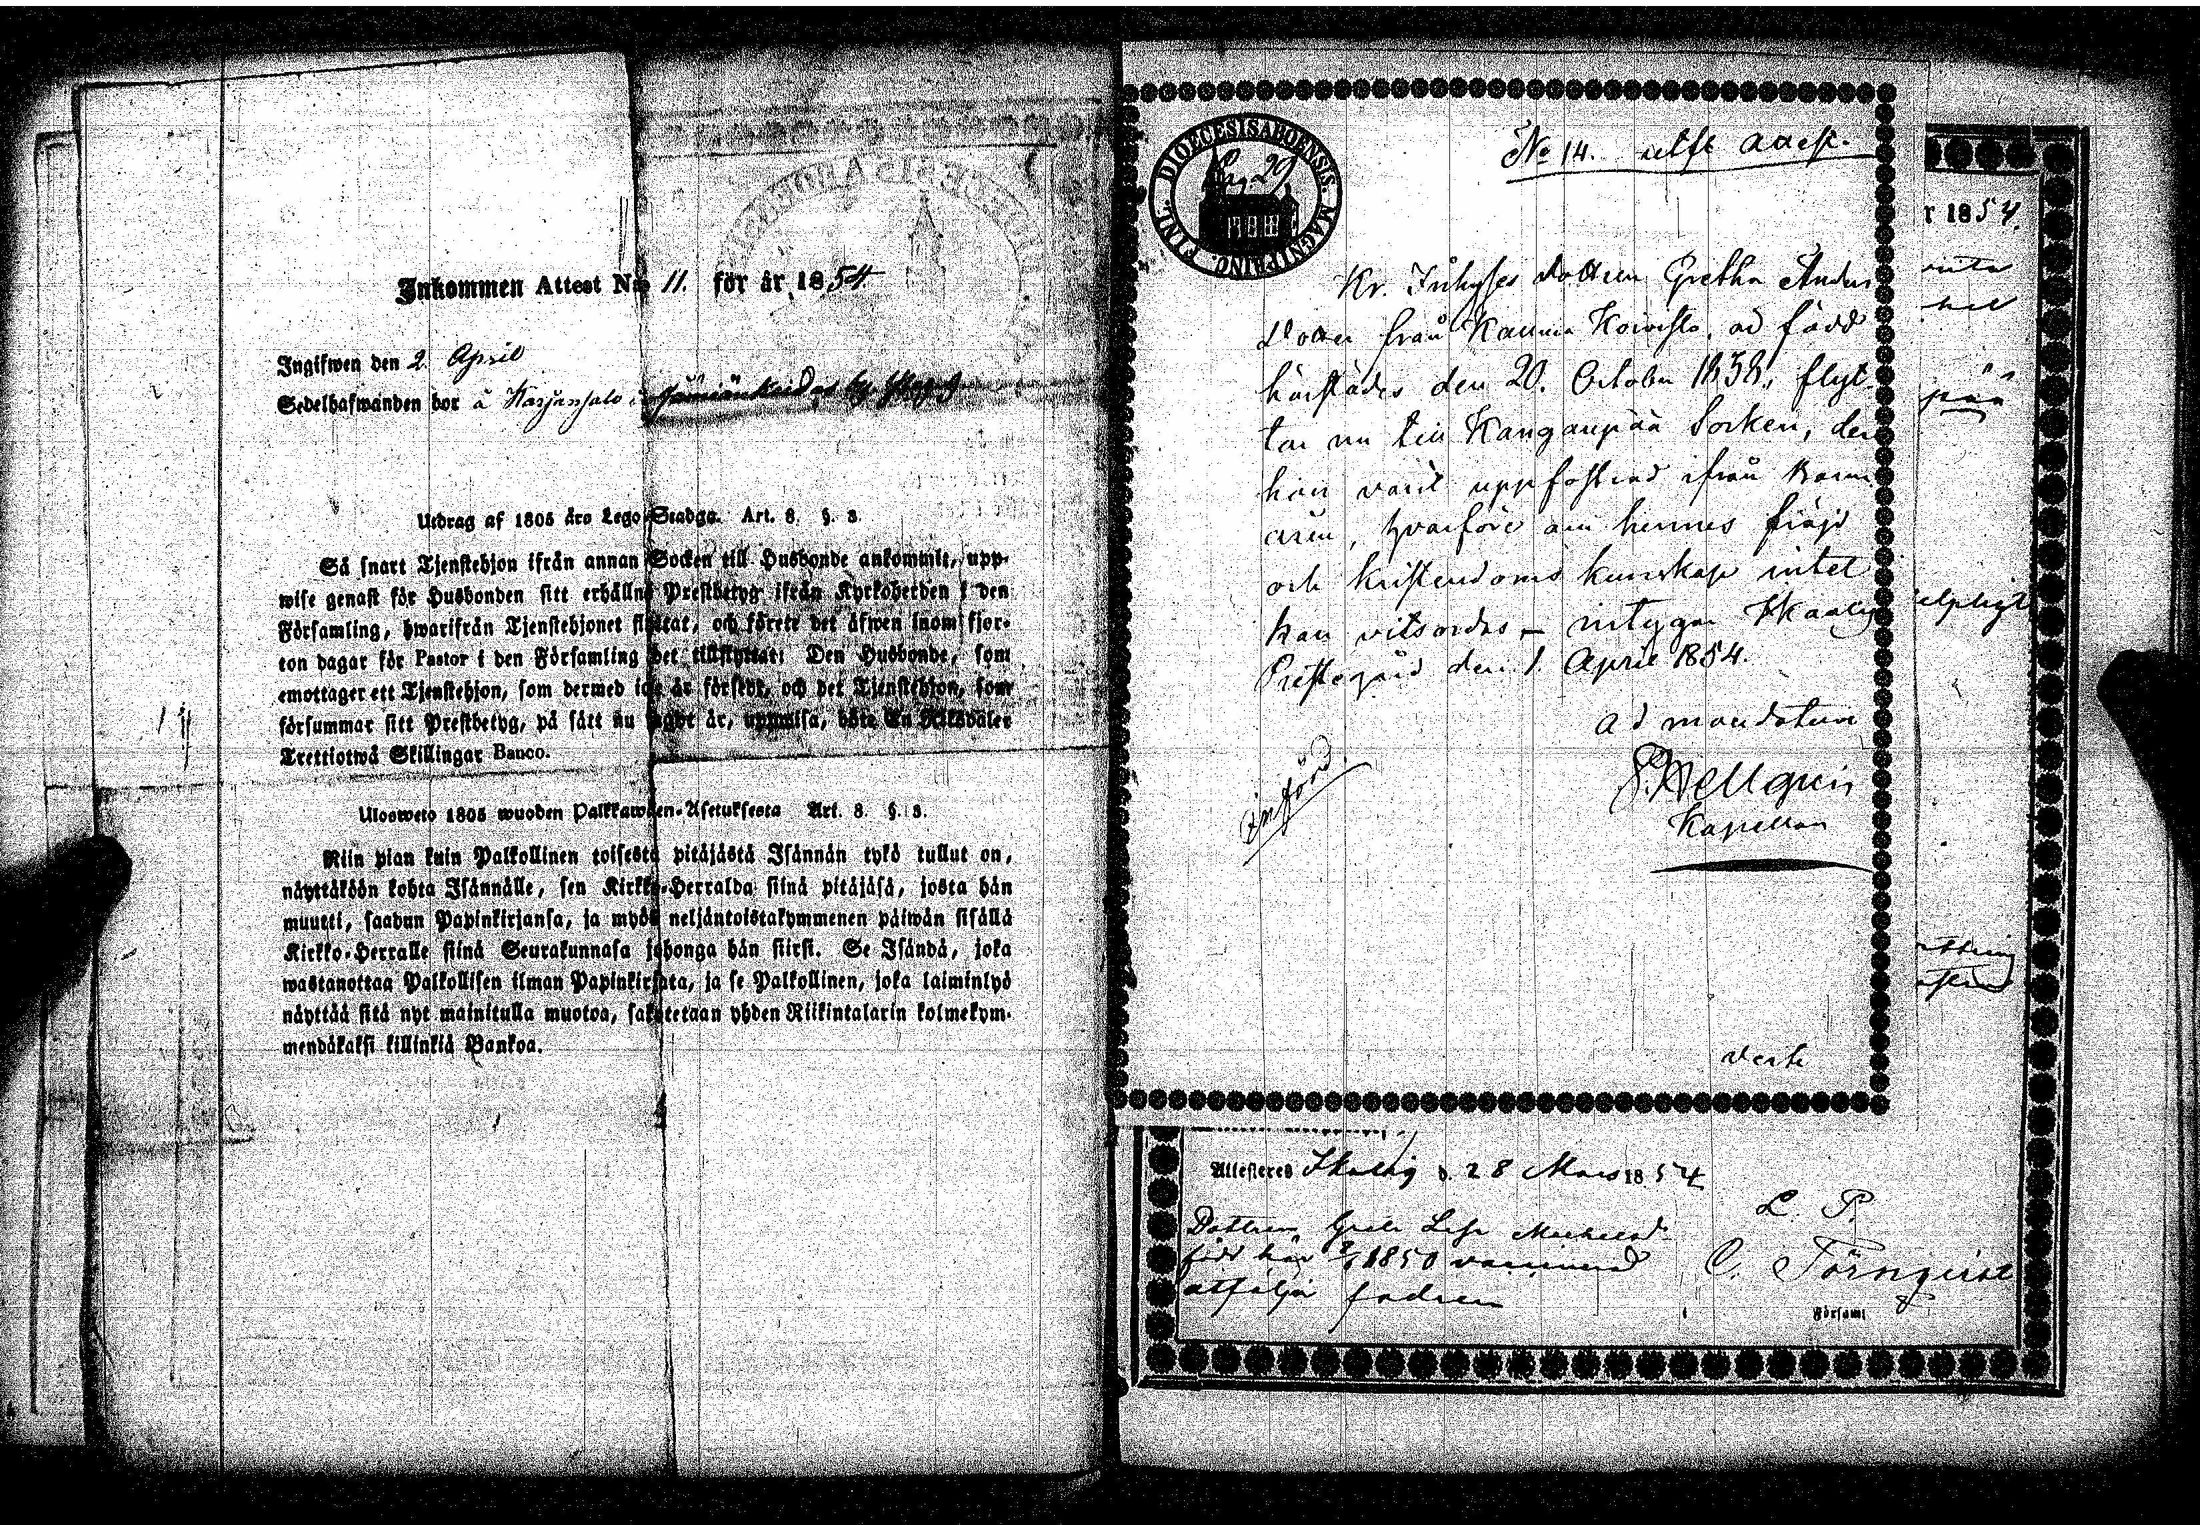 Inkommen Attest No 11. för år 1854
Ingifwen den 2 April
Sedelhafwanden bor å Karjanjalo i
Utdrag af 1805 års Lego-Stadga. Art. 8. §. 3.
Så snart Tjenstehjon ifrån annan Socken till Husbonde ankommit, upp-
wise genast för Husbonden sitt erhållne Prestbetyg ifrån Kyrkoherden i den
Församling, hwarifrån Tjenstehjonet flyttat, och förete det äfwen inom fjor-
ton dagar för Pastor i den Församling det tillflyttat: Den Husbonde, som
emottager ett Tjenstehjon, som dermed icke är försedt, och det Tjenstehjon, som
försummar sitt Prestbetyg, på sätt nu sagdt är, uppwisa, böte En Riksdaler
Trettiotwå Skillingar Banco.
Ulosweto 1805 wuoden Palkkawäen-Asetuksesta Art. 8. §. 3.
Niin pian kuin Palkollinen toisesta pitäjästä Isännän tykö tullut on,
näyttäköön kohta Isännälle, sen Kirkko-Herralda siinä pitäjäsä, josta hän
muutti, saadun Papinkirjansa, ja myös neljäntoistakymmenen päiwän sisällä
Kirkko-Herralle siinä Seurakunnasa johonga hän siirsi. Se Isändä, joka
wastanottaa Palkollisen ilman Papinkirjata, ja se Palkollinen, joka laiminlyö
näyttää sitä nyt mainitulla muotoa, sakotetaan yhden Riikintalarin kolmekym-
mendäkaksi killinkiä Bankoa.
DIOECESIS ABOENSIS. MAGNI PRINC. FINL.
No 14. utft attest.
Kr. Inhyses dottren Gretha Anders
dotter från Kauma Koivisto, äd född
härstädes den 20. October 1838, flyt-
tar nu till Kangaupää Socken, der
hon varit uppfostrad ifrån barn
åren, hvarföre om hennes fräjd
och kristendoms kunskap intet
kan vitsordas – intygar Ikaalis
Prestegård den 1. April 1854.
ad mandatum
Hellgren
Kapellan
införd
verte
r 1854.
Attesteres Ikalis d. 28 Mars 1854
L. P.
Dottren Greta Lisa Michelsd.
född här 1850 vaccinerad
åtfölja fadren
C. Törnqvist
Församl